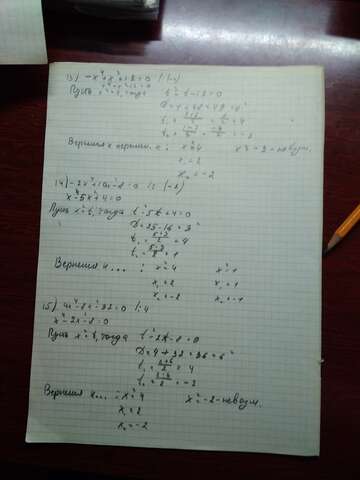 13) -x⁴+x²+12=0 /:(-1)
x⁴-x²-12=0
Пусть x²=t, тогда t²-t-12=0
D=1+48=49=7²
t₁=(1+7)/2=8/2=4
t₂=(1-7)/2=-6/2=-3
Вернемся к x²=4 x²=-3-невозм.
x₁=2
x₂=-2
14)-2x⁴+10x²-8=0 /:(-2)
x⁴-5x²+4=0
Пусть x²=t, тогда t²-5t+4=0
D=25-16=9=3²
t₁=(5+3)/2=4
t₂=(5-3)/2=1
Вернемся к ... : x²=4 x²=1
x₁=2 x₁=1
x₂=-2 x₂=-1
15) 4x⁴-8x²-32=0 /:4
x⁴-2x²-8=0
Пусть x²=t, тогда t²-2t-8=0
D=4+32=36=6²
t₁=(2+6)/2=4
t₂=(2-6)/2=-2
Вернемся к... x²=4 x²=-2-невозм.
x₁=2
x₂=-2